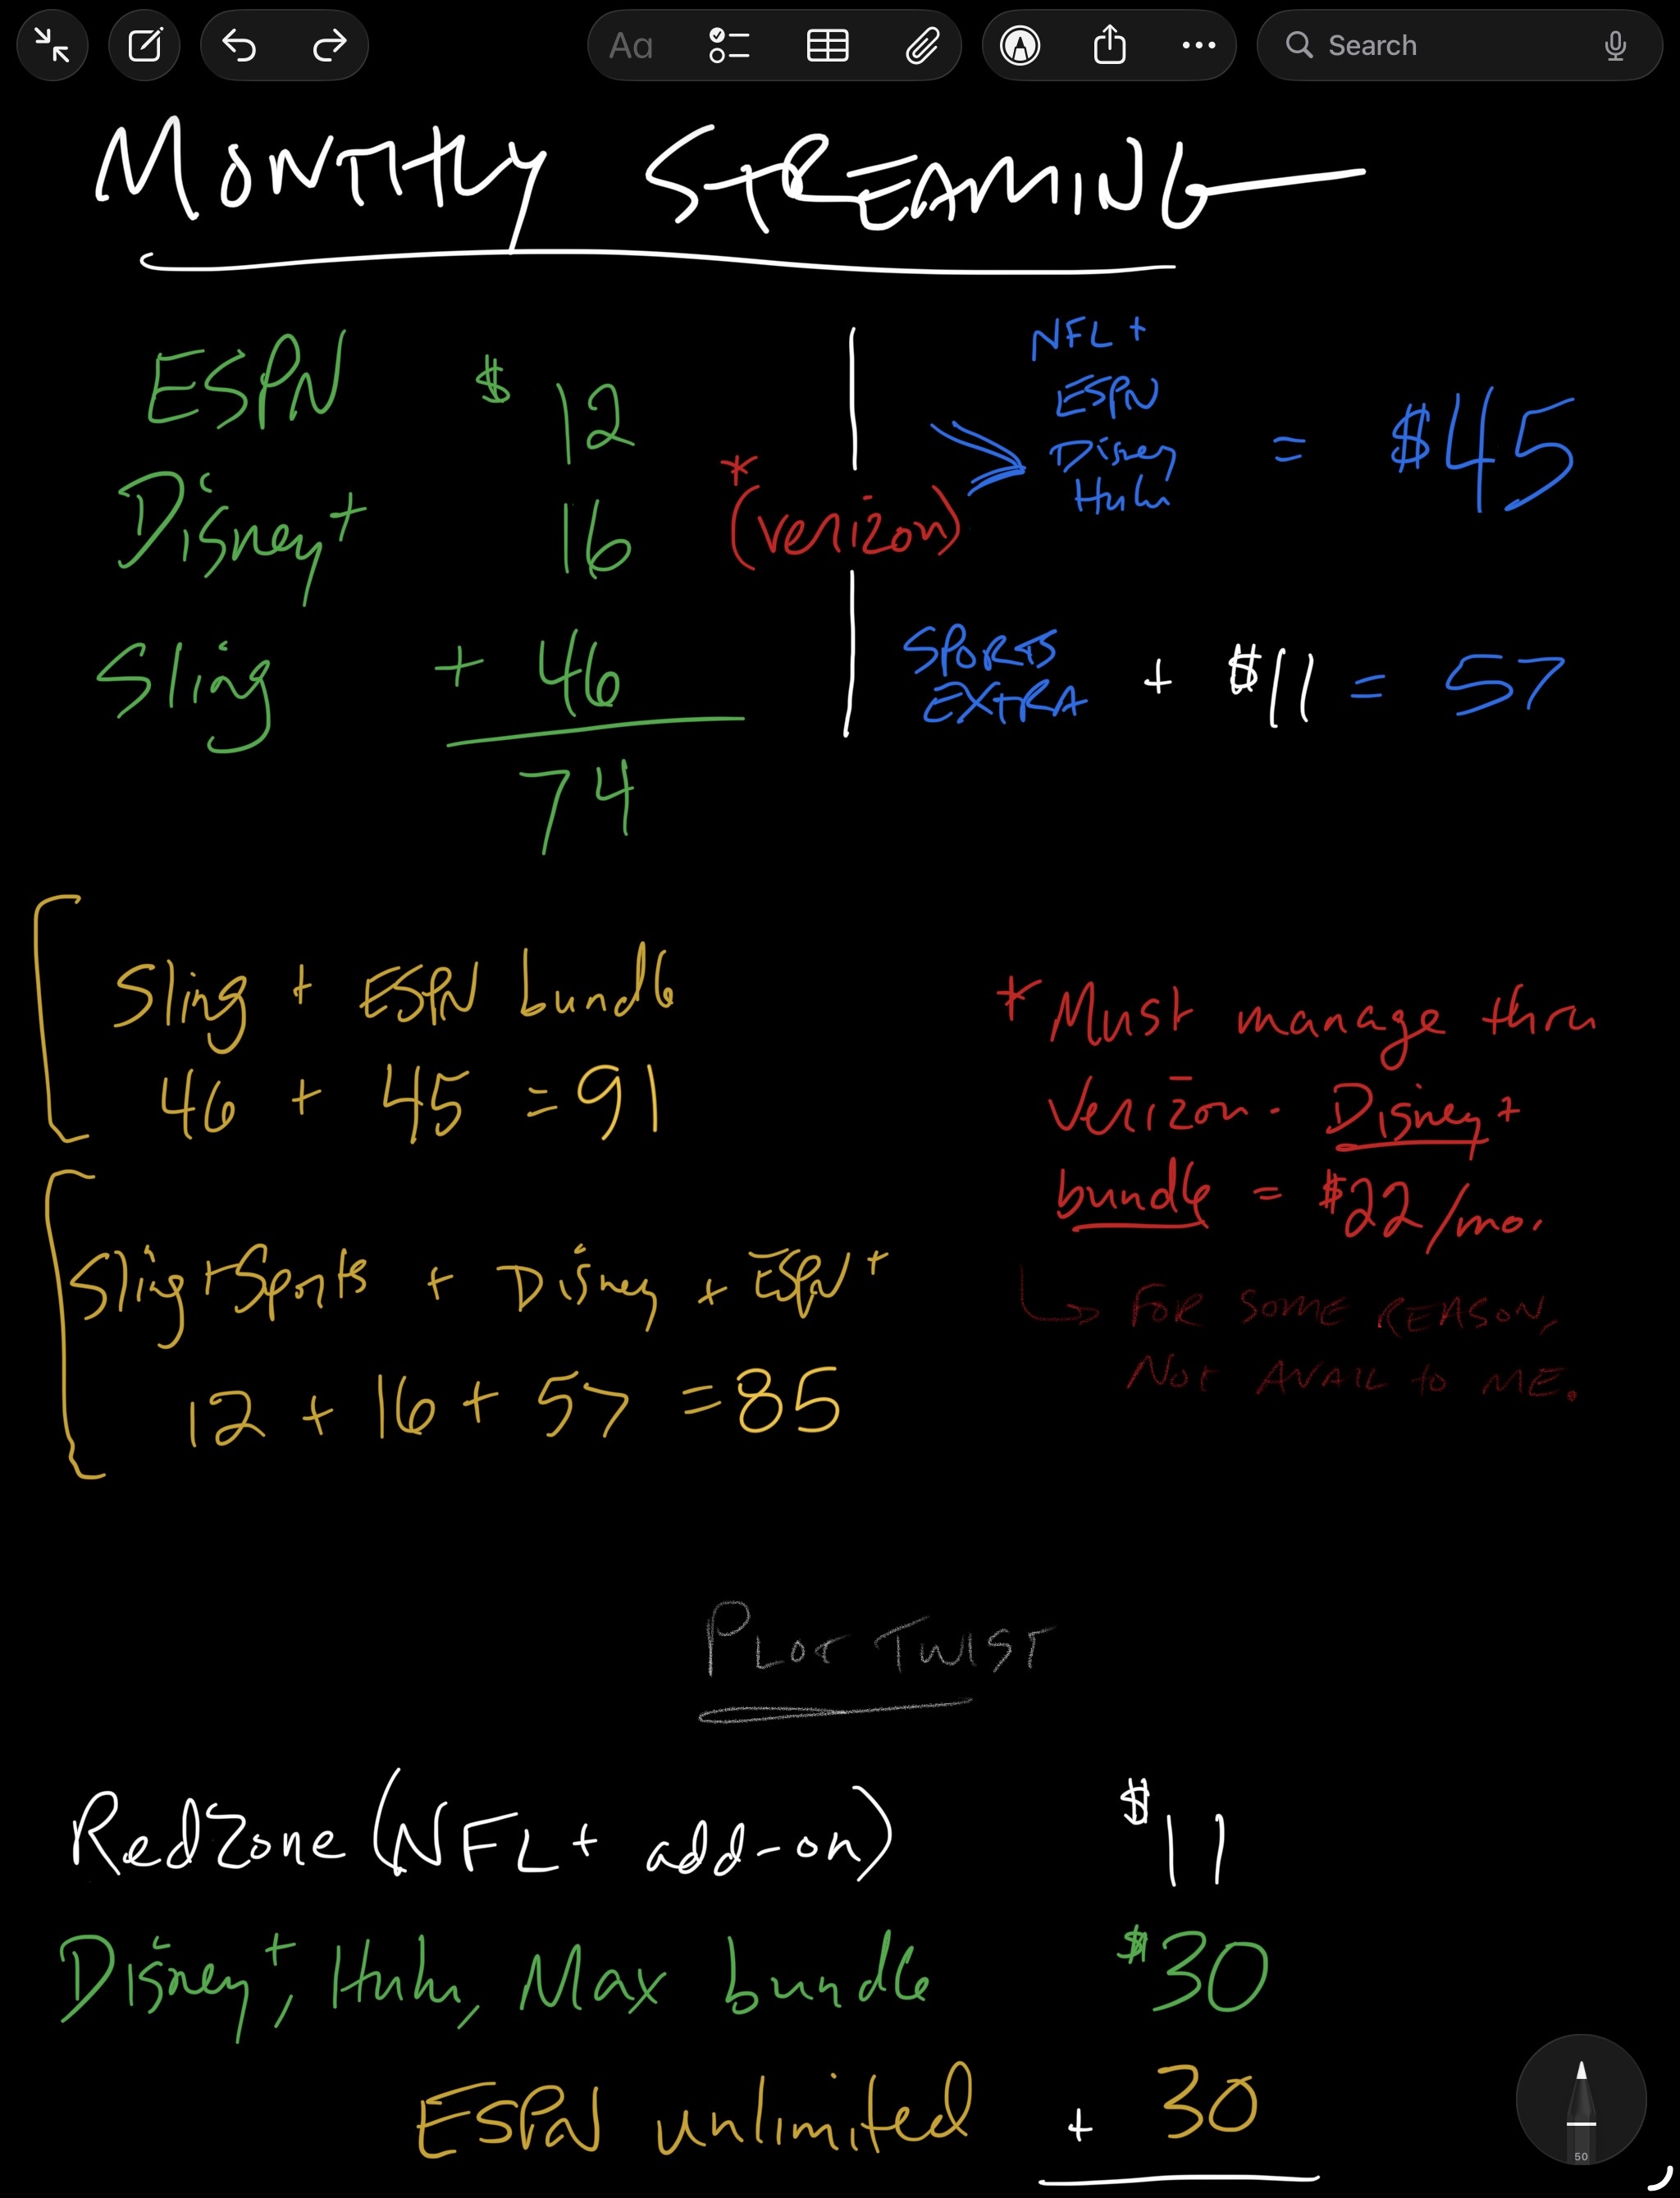 Aa
Search
MONTHLY STREAMING
ESPN $ 12
Disney+ 16
Sling + 46
74
* (verizon)
NFL +
ESPN
Disney
Hulu
= $45
SPORTS
EXTRA
+ $11 = 57
Sling + ESPN bundle
46 + 45 = 91
Sling+Sports + Disney + ESPN+
12 + 16 + 57 = 85
* Must manage thru
Verizon - Disney+
bundle = $22/mo.
FOR SOME REASON,
NOT AVAIL to ME.
PLOT TWIST
RedZone (NFL+ add-on) $11
Disney+, Hulu, Max bundle $30
ESPN unlimited + 30
50